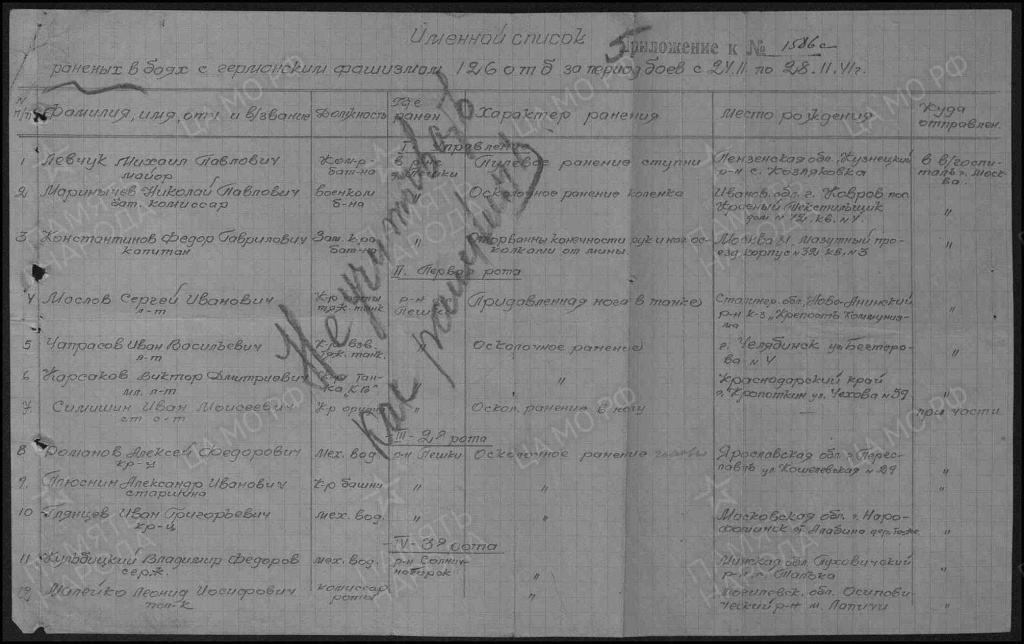 Именной список
Приложение к № 1586с
5
раненых в боях с германским фашизмом 126 отб за период боев с 24.11. по 28.11.41г.
N п/п Фамилия, имя, отч. и в/звание Должность Где ранен Характер ранения Место рождения Куда отправлен.
I. Управление
1 Левчук Михаил Павлович Ком-р в р-не Пулевое ранение ступни Пензенская обл. Кузнецкий в в/госпи-
майор бат-на д. Пешки р-н с. Козляковка таль г. Моск-
ва.
2 Маринычев Николай Павлович Военком " Осколочное ранение коленка Иванов. обл. г. Ковров пос. "
бат. комиссар б-на Красный Текстильщик
дом N 121, кв. N 4.
3 Константинов Федор Гаврилович Зам. к-ра " Оторванны конечности рук и ног ос- Москва Мазутный про- "
капитан бат-на колками от мины. езд корпус N 32 кв. N 3
II. Первая рота
4 Маслов Сергей Иванович К-р роты р-н Придавленная нога в танке Сталингр. обл. Ново-Анинский "
л-т тяж. танк. Пешки р-н к-з "Крепость Коммуниз-
ма
5 Чапрасов Иван Васильевич К-р взв. " Осколочное ранение г. Челябинск ул. "
л-т тяж. танк. ва N 4
6 Карсаков Виктор Дмитриевич К-р тан- " " Краснодарский край "
мл. л-т ка "КВ" г. Кропоткин ул. Чехова N 39
7 Симишин Иван Моисеевич К-р орудия " Оскол. ранение в ногу — при части
ст. с-т
-III- 2я рота
8 Романов Алексей Федорович мех. вод. р-н Пешки Осколочное ранение головы Ярославская обл. г. Перес- "
кр-ц лавль ул. Кошелевская N 29
9. Плюснин Александр Иванович К-р башни " " "
старшина
10 Глянцев Иван Григорьевич мех. вод. " " Московская обл. г. Наро- "
кр-ц Фоминск ст. Алабина дер.
-IV- 3я рота
11 Кульбицкий Владимир Федоров мех. вод. р-н Солнеч- " Минская обл. Пуховичский "
серж. ногорск р-н г. Талька
12 Малейко Леонид Иосифович комиссар " Могилевск. обл. Осипови- "
пол-к роты ческий р-н м. Лапичи
Не учитывать
как раненных
ЦАМО.РФ
ПАМЯТЬ НАРОДА